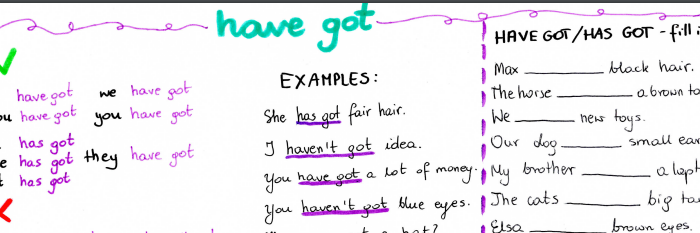 have got
have got we have got
you have got
has got
has got they have got
has got
EXAMPLES:
She has got fair hair.
I haven't got idea.
You have got a lot of money.
You haven't got blue eyes.
HAVE GOT/HAS GOT - fill
Max ________ black hair.
The horse ________ a brown
We ________ new toys.
Our dog ________ small
My brother ________ a
The cats ________ big
Elsa ________ brown eyes.